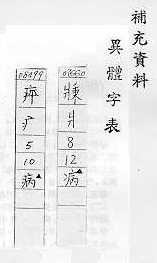 補充資料
異體字表
爿
8
12
病▲
06499
疒
5
10
病▲